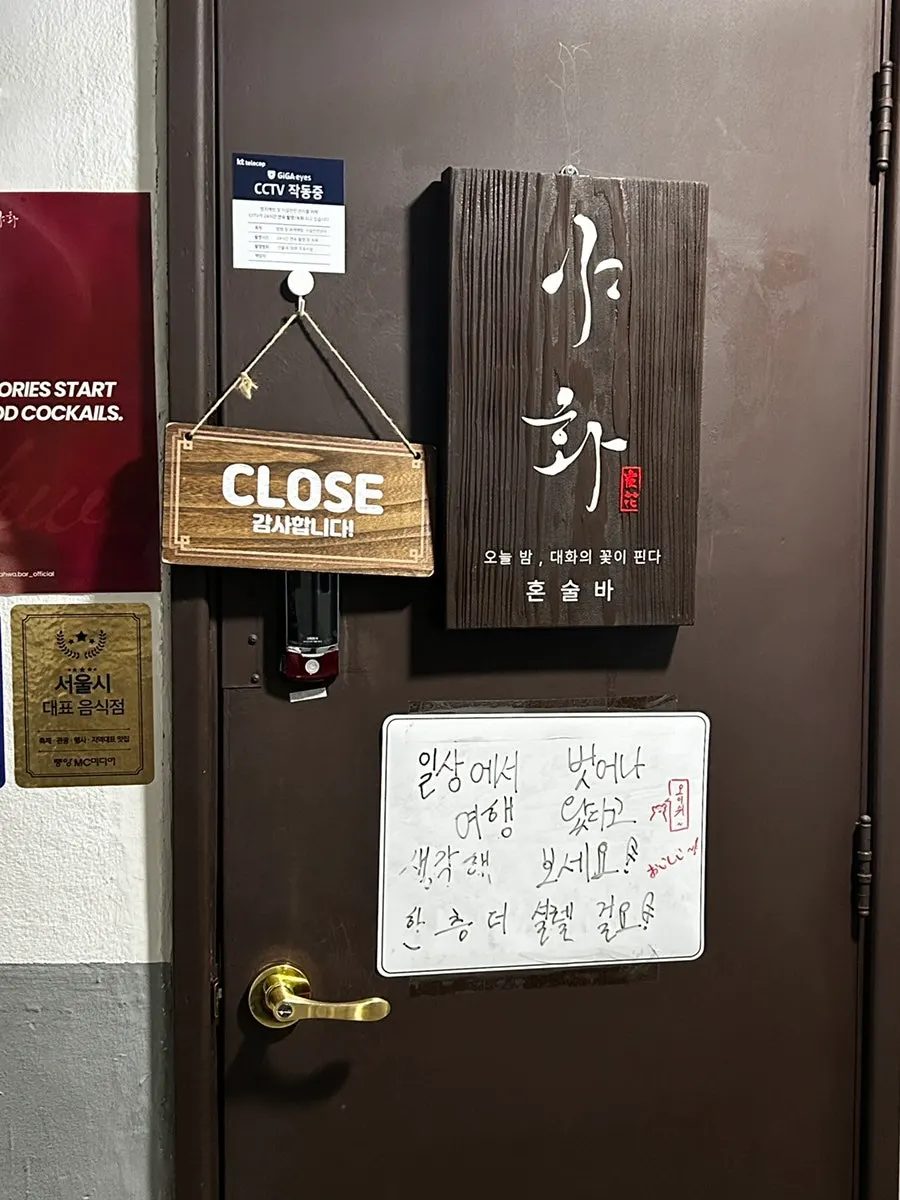 kt telecop
GiGA eyes
CCTV 작동중
야
화
夜花
오늘 밤, 대화의 꽃이 핀다
혼술바
ORIES START
OD COCKAILS.
ahwa.bar_official
CLOSE
감사합니다!
서울시
대표 음식점
축제·관광·행사·지역대표 맛집
중앙MC미디어
일상에서 벗어나
여행 왔다고
생각해 보세요!
한층 더 설렐 걸요!
오이시~
おいしい